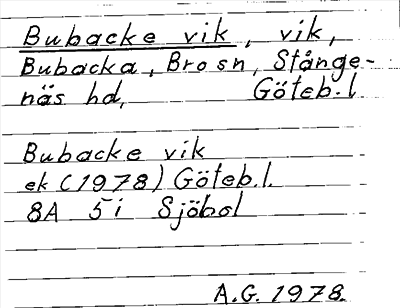 Bubacke vik, vik,
Bubacka, Brosn, Stånge-
näs hd, Göteb.l.
Bubacke vik
ek (1978) Göteb.l.
8A 5i Sjöbol
A.G. 1978.